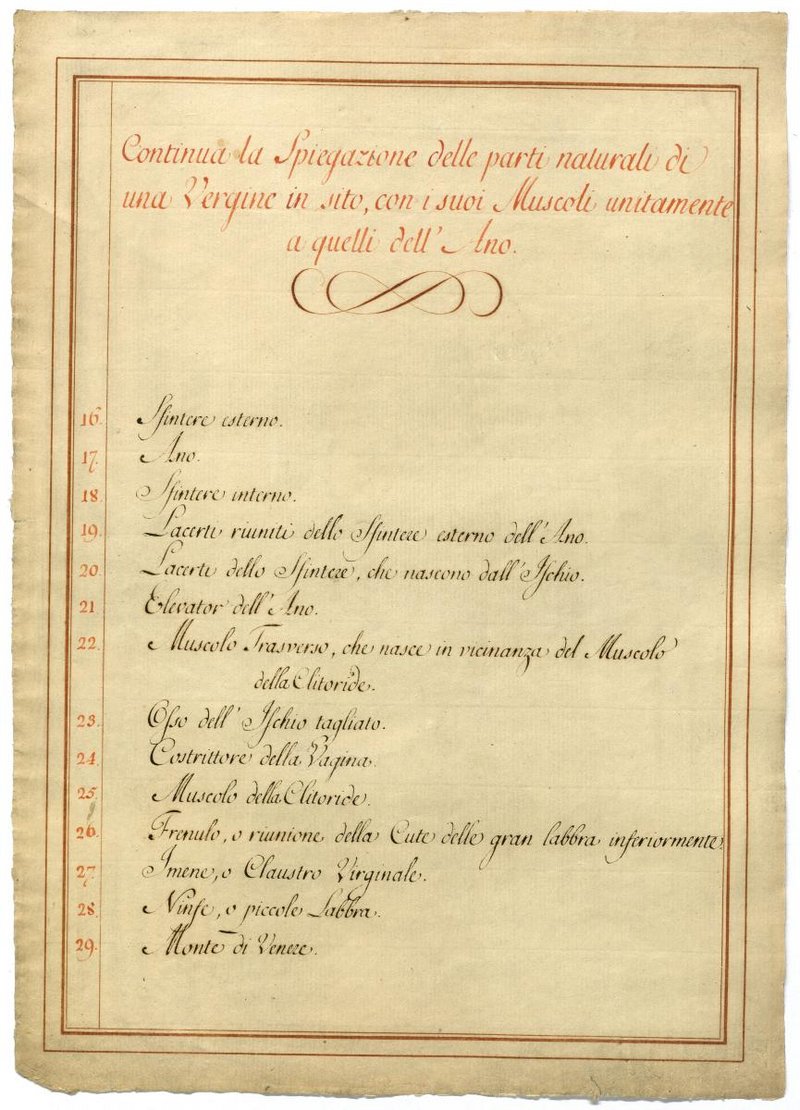 Continua la Spiegazione delle parti naturali di
una Vergine in sito, con i suoi Muscoli unitamente
a quelli dell' Ano.
16. Sfintere esterno.
17. Ano.
18. Sfintere interno.
19. Lacerti riuniti dello Sfintere esterno dell' Ano.
20. Lacerti dello Sfintere, che nascono dall' Ischio.
21 Elevator dell' Ano.
22. Muscolo Trasverso, che nasce in vicinanza del Muscolo
della Clitoride.
23. Osso dell' Ischio tagliato.
24. Costrittore della Vagina.
25. Muscolo della Clitoride.
26. Frenulo, o riunione della Cute delle gran labbra inferiormente.
27. Imene, o Claustro Virginale.
28. Ninfe, o piccole Labbra.
29. Monte di Venere.